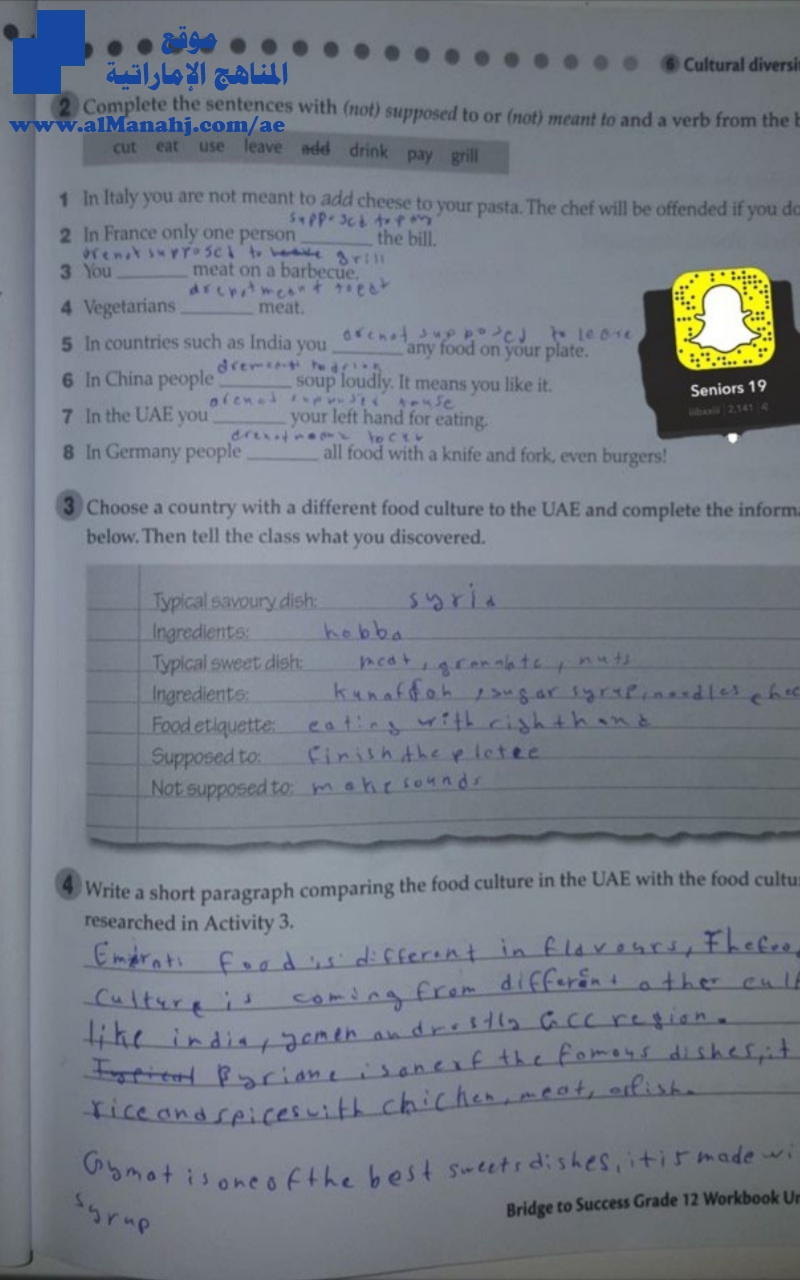 موقع
المناهج الإماراتية
www.alManahj.com/ae
6 Cultural diversi
2 Complete the sentences with (not) supposed to or (not) meant to and a verb from the b
cut eat use leave add drink pay grill
1 In Italy you are not meant to add cheese to your pasta. The chef will be offended if you do
supposed to pay
2 In France only one person ______ the bill.
are not supposed to grill
3 You ______ meat on a barbecue.
are not meant to eat
4 Vegetarians ______ meat.
are not supposed to leave
5 In countries such as India you ______ any food on your plate.
are meant to drink
6 In China people ______ soup loudly. It means you like it.
are not supposed to use
7 In the UAE you ______ your left hand for eating.
are not meant to cut
8 In Germany people ______ all food with a knife and fork, even burgers!
Seniors 19
2,141
3 Choose a country with a different food culture to the UAE and complete the informa
below. Then tell the class what you discovered.
Typical savoury dish: syria
Ingredients: kobba
Typical sweet dish: meat, , nuts
Ingredients: kunaffah, sugar syrup, noodles chee
Food etiquette: eating with righ thand
Supposed to: finish the platee
Not supposed to: make sounds
4 Write a short paragraph comparing the food culture in the UAE with the food cultu
researched in Activity 3.
Emirati food is different in flavours, The foo
culture is coming from different other cult
like india, yemen and GCC region.
Typical Byriane is one of the famous dishes, it
rice and spices with chichen, meat, or fish.
Gymat is one of the best sweets dishes, it is made wi
syrup
Bridge to Success Grade 12 Workbook Un